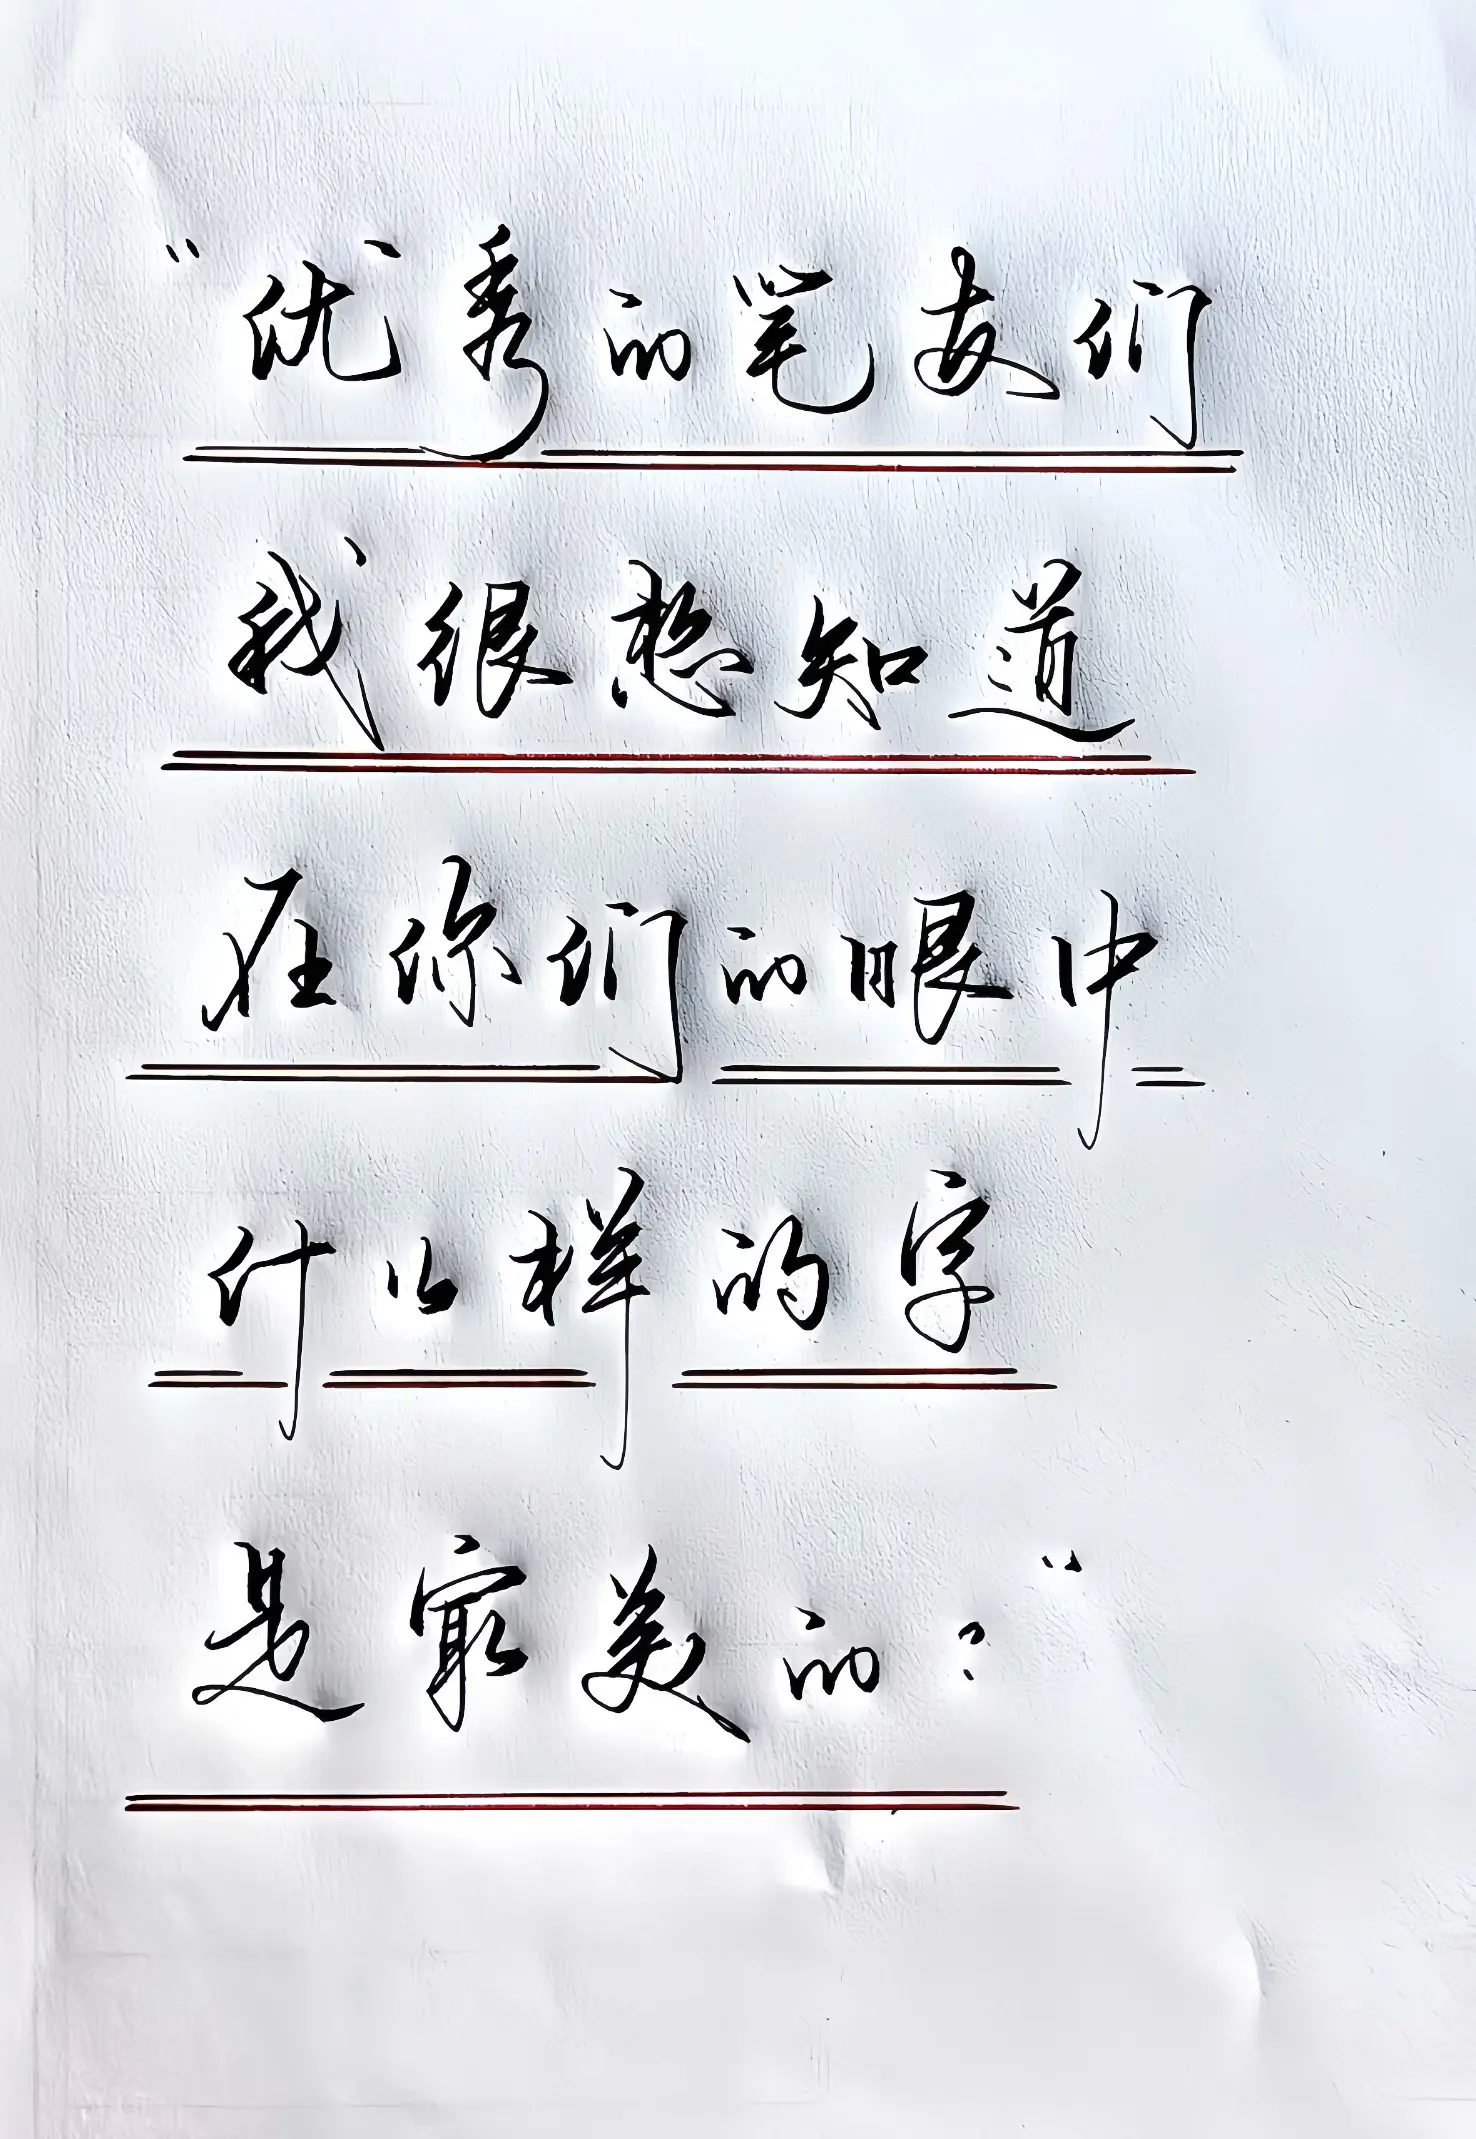 “优秀的笔友们
我很想知道
在你们的眼中
什么样的字
是最美的？”